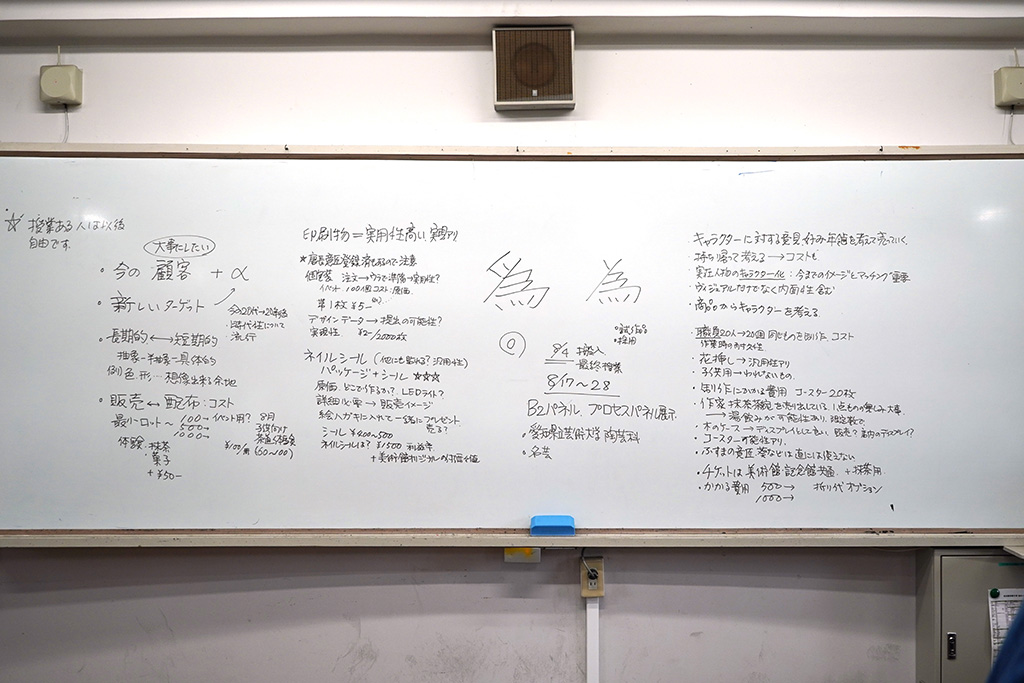 ☆ 授業ある人は以後
自由です。
大事にしたい
・今の 顧客 + α
・新しいターゲット
今の20代→20年後
・時代性について
流行
・長期的 ←→ 短期的
抽象-半抽象-具体的
例 色、形… 想像出来る余地
・販売 ↔ 配布:コスト
最小ロット〜 100→イベント用?
500→
1000→
8月
子供向け
茶道体験会
(50〜100)
体験、抹茶
菓子
+ ¥50-
印刷物 = 実用性高い、実現アリ
イベント 100個 コスト:原価
第1枚 ¥5-
デザインデータ → 提出の可能性?
実現性 ¥2-/2000枚
ネイルシール (他にも貼れる? 汎用性)
パッケージ + シール ☆☆☆
原価、どこで作るか? LEDライト?
詳細必要 → 販売イメージ
絵入ハガキに入れて一緒にプレゼント
売る?
シール ¥400〜500
ネイルシールは? ¥1500 利益率
+ 美術館オリジナルの付加価値
為 為
・試作品
・採用
8/4 搬入
最終授業
8/17〜28
B2パネル、プロセスパネル展示
・愛知県立芸術大学 陶芸科
・名芸
・キャラクターに対する意見 好み・年齢を考えて売っていく。
・持ち帰って考える → コストも
・実在人物のキャラクター化:今までのイメージとマッチング 重要
・ヴィジュアルだけでなく内面性含む
・商品からキャラクターを考える
・職員20人→20個 同じものを創り作、コスト
・花挿し → 汎用性アリ
・子供用 → われないもの.
・型り作にかかる費用 コースター20枚
・作家 抹茶茶碗を売り出している
→ 湯飲みが可能性あり、限定数で
・木のケース → ディスプレイとして高い、販売?
・コースター 可能性アリ.
・ふすまの意匠 茶などは直には使えない
・チケットは美術館・記念館共通. + 抹茶用.
・かかる費用 500→ 折り代 オプション
1000→